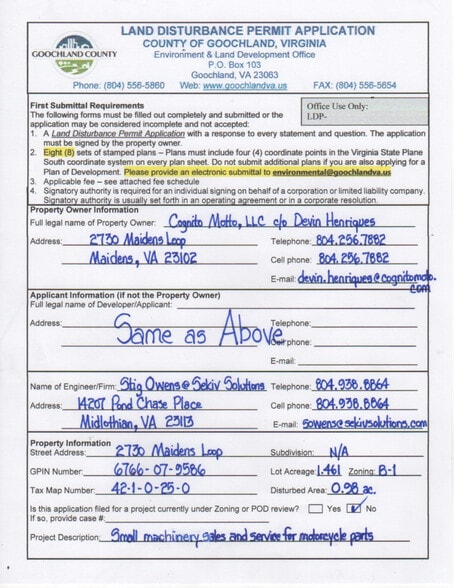 GOOCHLAND COUNTY
LAND DISTURBANCE PERMIT APPLICATION
COUNTY OF GOOCHLAND, VIRGINIA
Environment & Land Development Office
P.O. Box 103
Goochland, VA 23063
Phone: (804) 556-5860 Web: www.goochlandva.us FAX: (804) 556-5654
First Submittal Requirements
The following forms must be filled out completely and submitted or the
application may be considered incomplete and not accepted:
Office Use Only:
LDP-
1. A Land Disturbance Permit Application with a response to every statement and question. The application
must be signed by the property owner.
2. Eight (8) sets of stamped plans – Plans must include four (4) coordinate points in the Virginia State Plane
South coordinate system on every plan sheet. Do not submit additional plans if you are also applying for a
Plan of Development. Please provide an electronic submittal to environmental@goochlandva.us
3. Applicable fee – see attached fee schedule
4. Signatory authority is required for an individual signing on behalf of a corporation or limited liability company.
Signatory authority is usually set forth in an operating agreement or in a corporate resolution.
Property Owner Information
Full legal name of Property Owner: Cognito Motto, LLC c/o Devin Henriques
Address: 2730 Maidens Loop Telephone: 804.256.7882
Maidens, VA 23102 Cell phone: 804.256.7882
E-mail: devin.henriques@cognitomoto.
com
Applicant Information (if not the Property Owner)
Full legal name of Developer/Applicant:
Address: Same as Above Telephone:
Cell phone:
E-mail:
Name of Engineer/Firm: Stig Owens @ Sekiv Solutions Telephone: 804.938.8864
Address: 14207 Pond Chase Place Cell phone: 804.938.8864
Midlothian, VA 23113 E-mail: sowens@sekivsolutions.com
Property Information
Street Address: 2730 Maidens Loop Subdivision: N/A
GPIN Number: 6766-07-9586 Lot Acreage: 1.461 Zoning: B-1
Tax Map Number: 42-1-0-25-0 Disturbed Area: 0.98 ac.
Is this application filed for a project currently under Zoning or POD review? Yes No
If so, provide case #:
Project Description: Small machinery sales and service for motorcycle parts